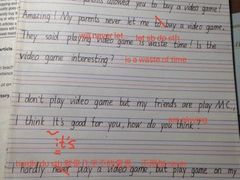 parents allowed you to buy a video game!
Amazing! My parents never let me to buy a video game.
will never let
let sb do sth
They said playing video game is waste time! Is the
is a waste of time
video game interesting?
I don't play video game but my friends are play MC,
are playing
I think It's good for you, how do you think?
it's
hardly
I hardly never play a video game, but play game on my